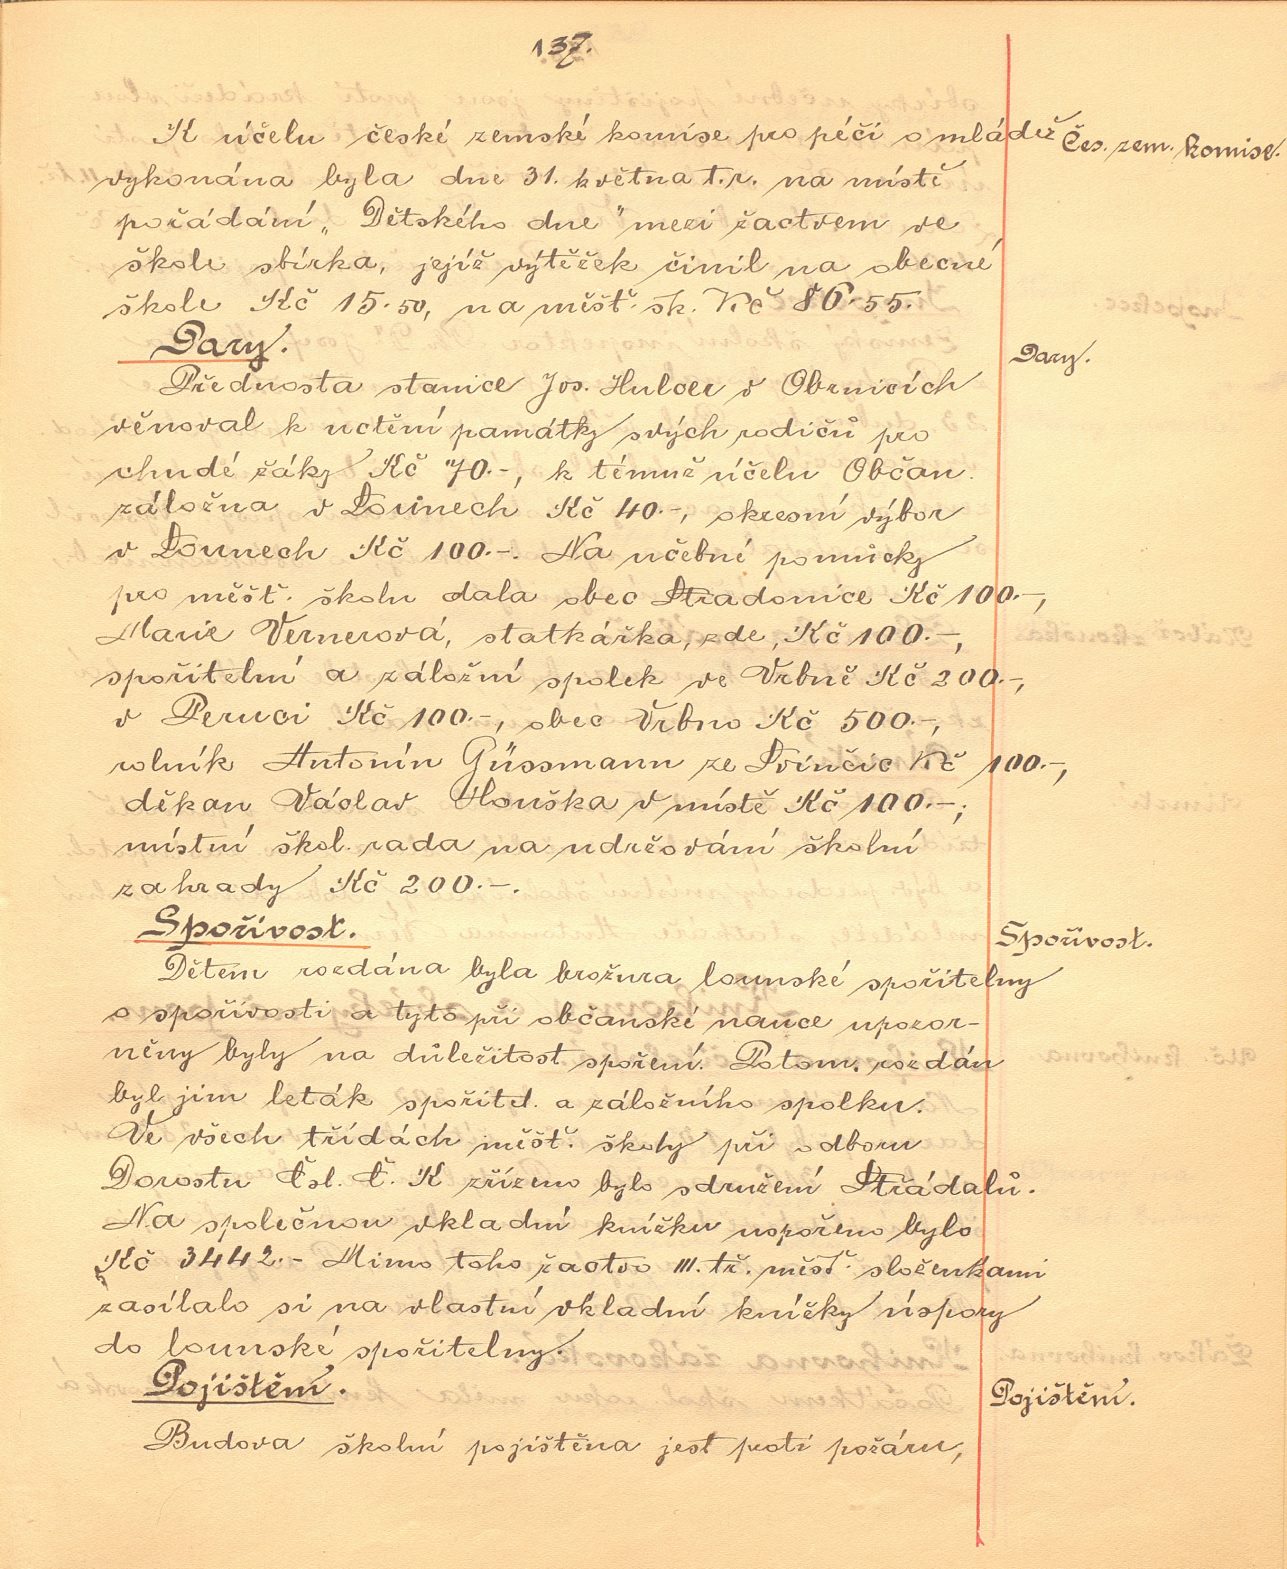 137.
K účelu české zemské komise pro péči o mládež
Čes. zem. komise.
vykonána byla dne 31. května t.r. na místě
pořádání „Dětského dne" mezi žactvem ve
škole sbírka, jejíž výtěžek činil na obecné
škole Kč 15.50, na měšť. šk. Kč 86.55.
Dary.
Dary.
Přednosta stanice Jos. Hulcer v Obrnicích
věnoval k uctění památky svých rodičů pro
chudé žáky Kč 70.-, k témuž účelu Občan.
záložna v Lounech Kč 40.-, okresní výbor
v Lounech Kč 100.-. Na učebné pomůcky
pro měšť. školu dala obec Stradonice Kč 100.-,
Marie Vernerová, statkářka, zde, Kč 100.-,
spořitelní a záložní spolek ve Vrbně Kč 200.-,
v Peruci Kč 100.-, obec Vrbno Kč 500.-,
rolník Antonín Güssmann ze Lvinčic Kč 100.-,
děkan Václav Houška v místě Kč 100.-;
místní škol. rada na udržování školní
zahrady Kč 200.-.
Spořivost.
Spořivost.
Dětem rozdána byla brožura lounské spořitelny
o spořivosti a tyto při občanské nauce upozor-
něny byly na důležitost spoření. Potom rozdán
byl jim leták spořitel. a záložního spolku.
Ve všech třídách měšť. školy při odboru
Dorostu Čsl. Č. K zřízeno bylo sdružení Střádalů.
Na společnou vkladní knížku uspořeno bylo
Kč 3442.- Mimo toho žactvo III. tř. měšť. složenkami
zasílalo si na vlastní vkladní knížky úspory
do lounské spořitelny.
Pojištění.
Pojištění.
Budova školní pojištěna jest proti požáru,